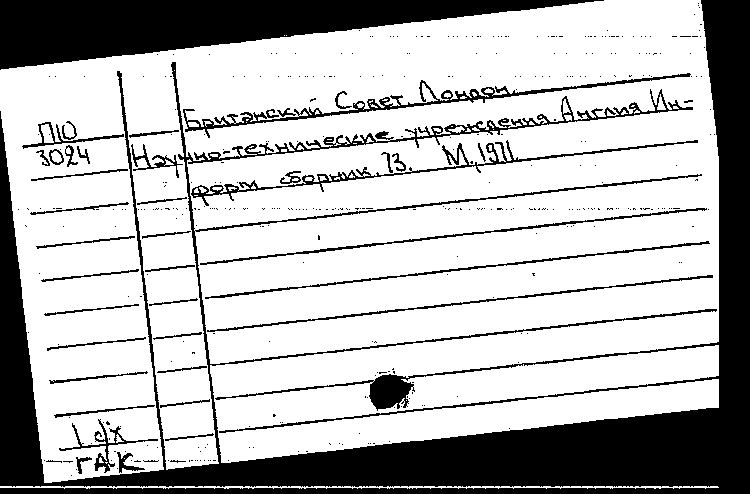 П10
3024
Британский Совет. Лондон.
Научно-технические учреждения. Англия Ин-
форм. сборник. 73. М., 1971.
1 с/х
ГАК